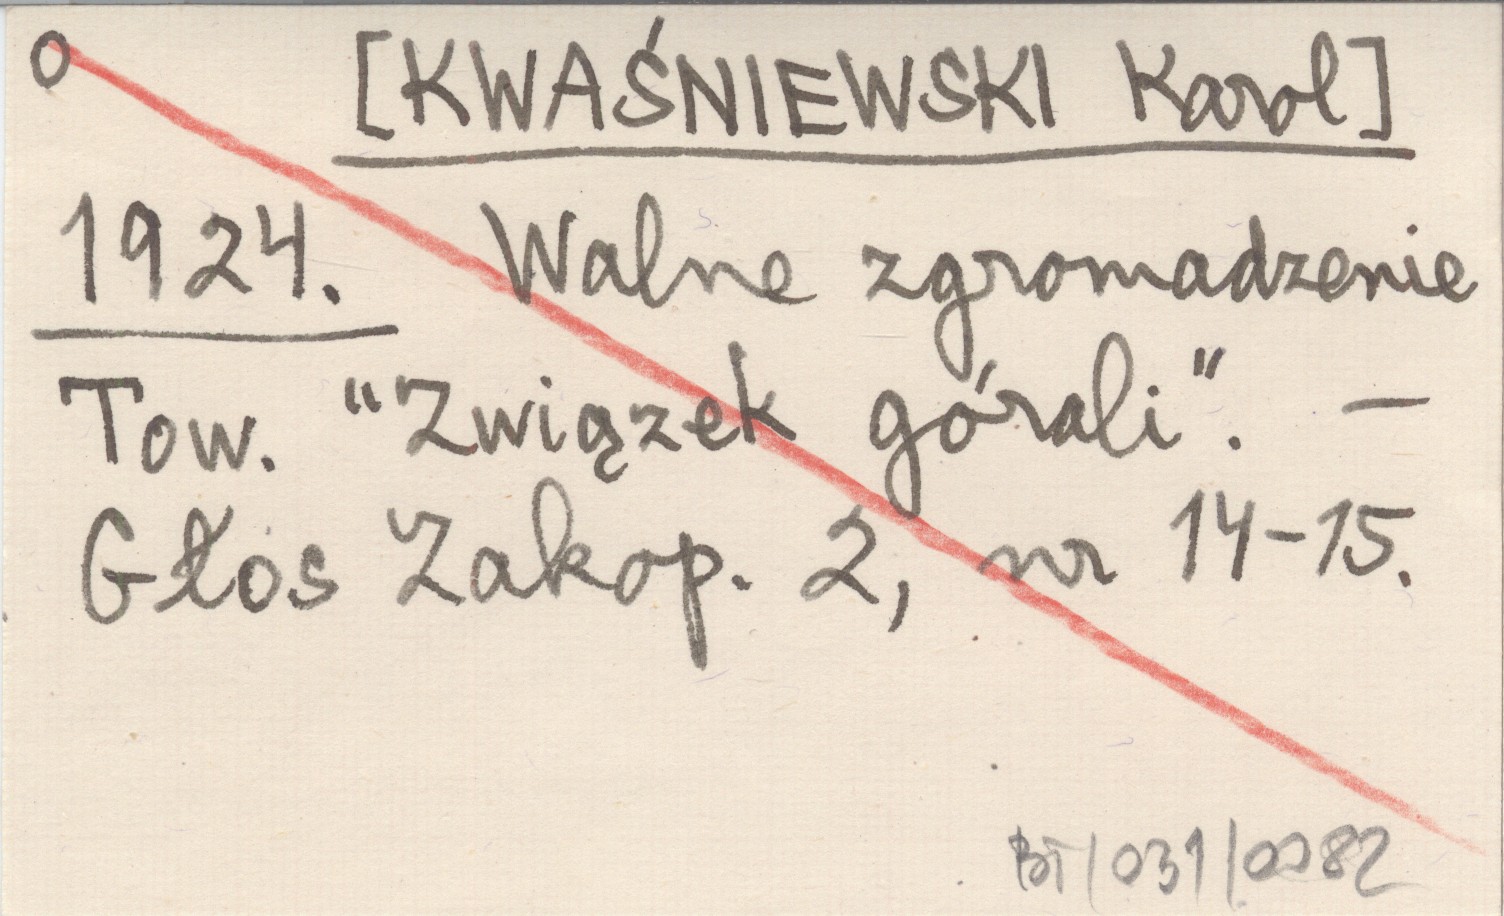 o [KWAŚNIEWSKI Karol]
1924. Walne zgromadzenie
Tow. "Związek górali". –
Głos Zakop. 2, nr 14-15.
BT/031/0082